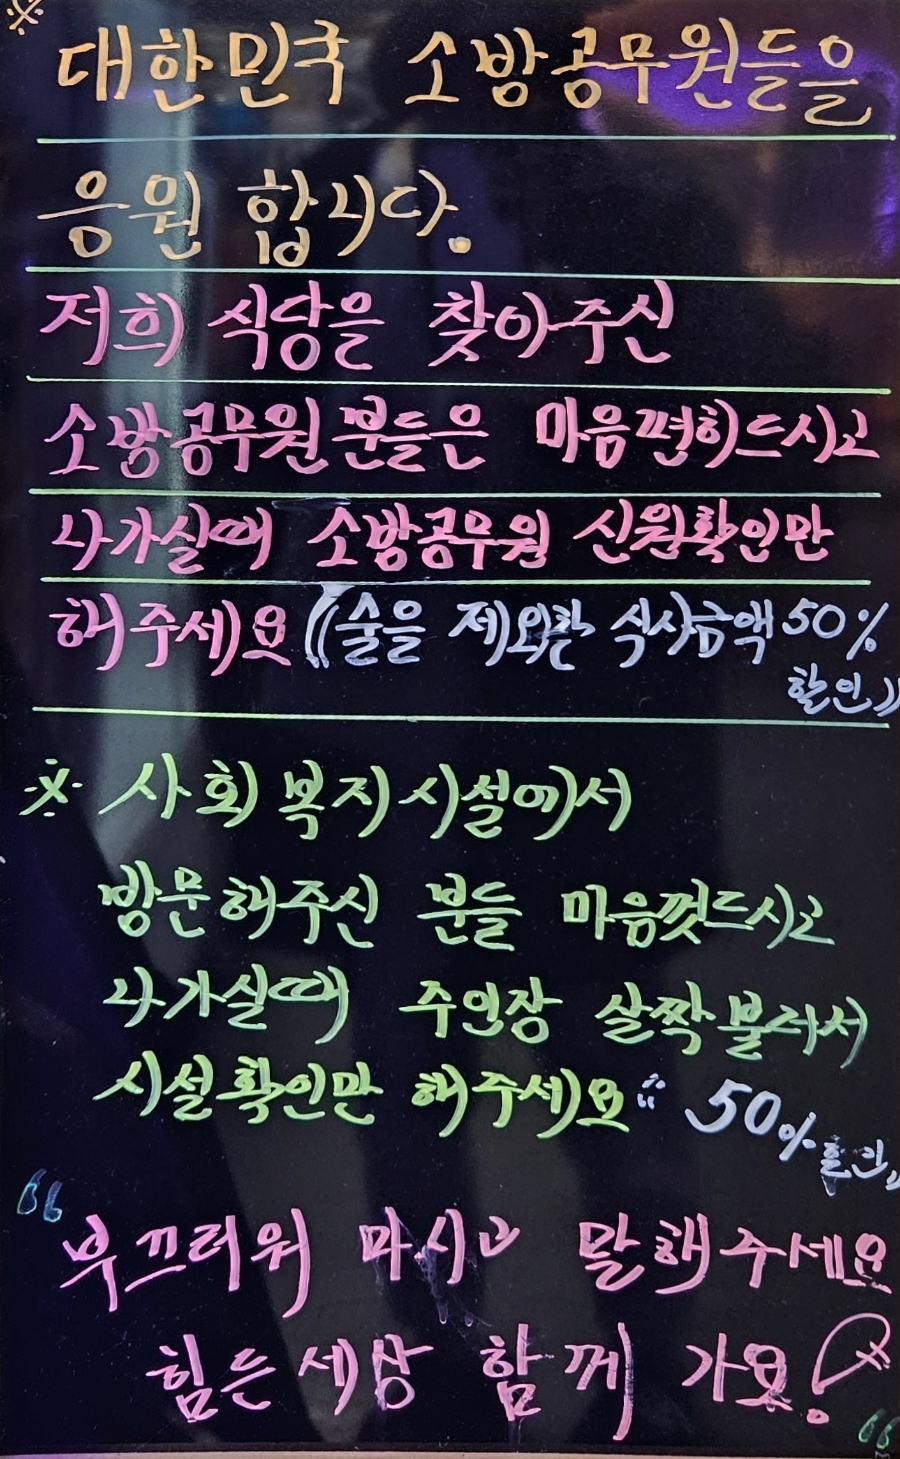 ※ 대한민국 소방공무원들을
응원 합니다.
저희 식당을 찾아주신
소방공무원분들은 마음편히드시고
나가실때 소방공무원 신원확인만
해주세요((술을 제외한 식사금액 50%
할인))
※ 사회복지시설에서
방문해주신 분들 마음껏드시고
나가실때 주인장 살짝불러서
시설확인만 해주세요 50%
할인
“부끄러워 마시고 말해주세요
힘든세상 함께 가요!”